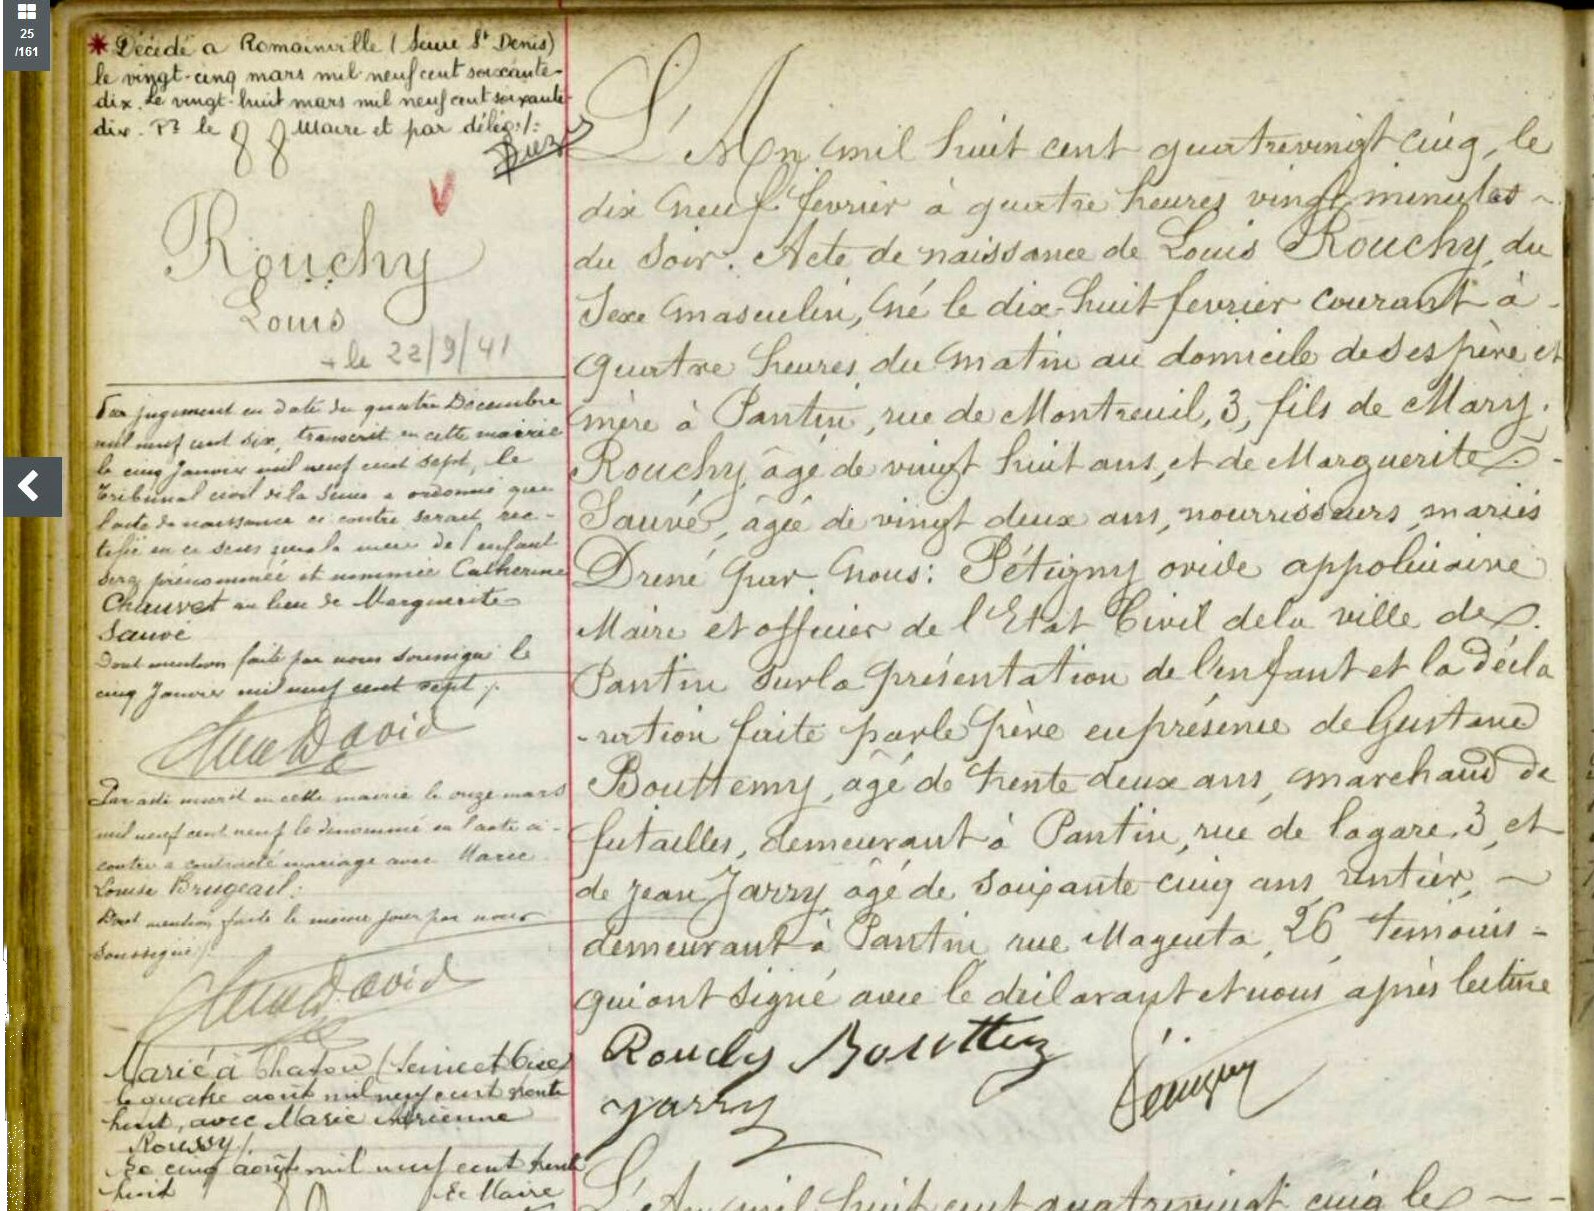 25
/161
* Décédé a Romainville (Seine St Denis)
le vingt-cinq mars mil neuf cent soixante-
dix. Le vingt-huit mars mil neuf cent soixante
dix. Pr le Maire et par délég./:
Rouchy
Louis
le 22/9/41
Par jugement en date du quatre Décembre
mil neuf cent six, transcrit en cette mairie
le cinq Janvier mil neuf cent sept, le
Tribunal civil de la Seine a ordonné que
l'acte de naissance ci contre serait rec-
tifié en ce sens que la mère de l'enfant
sera prénommée et nommée Catherine
Chauvet au lieu de Marguerite
Sauvé
Dont mention faite par nous soussigné le
cinq Janvier mil neuf cent sept ./.
David
Par acte inscrit en cette mairie le onze mars
mil neuf cent neuf le dénommé en l'acte ci-
contre a contracté mariage avec Marie
Louise Brugeail.
Dont mention faite le même jour par nous
soussigné ./.
David
Marié à Chatou (Seine et Oise)
le quatre août mil neuf cent trente
huit, avec Marie Adrienne
Roussy /.
Le cinq août mil neuf cent trente
huit Le Maire
L'An mil huit cent quatrevingt cinq, le
dix neuf fevrier à quatre heures vingt minutes ~
du soir. Acte de naissance de Louis Rouchy, du
sexe masculin, né le dix-huit fevrier courant à -
quatre heures du matin au domicile de ses père et
mère à Pantin, rue de Montreuil, 3, fils de Mary
Rouchy, âgé de vingt huit ans, et de Marguerite -
Sauvé, âgée de vingt deux ans, nourrisseurs, mariés
Dressé par nous: Pétigny ovide appolinaire
Maire et officier de l'Etat Civil de la ville de
Pantin sur la présentation de l'enfant et la décla
-ration faite par le père en présence de Gustave
Bouttemy, âgé de trente deux ans, marchand de
futailles, demeurant à Pantin, rue de la gare, 3, et
de Jean Jarry, âgé de soixante cinq ans, rentier, ~
demeurant à Pantin rue Magenta, 26, temoins -
qui ont signé avec le déclarant et nous après lecture
Rouchy Bouttemy
Jarry Pétigny
L'An mil huit cent quatrevingt cinq le - -